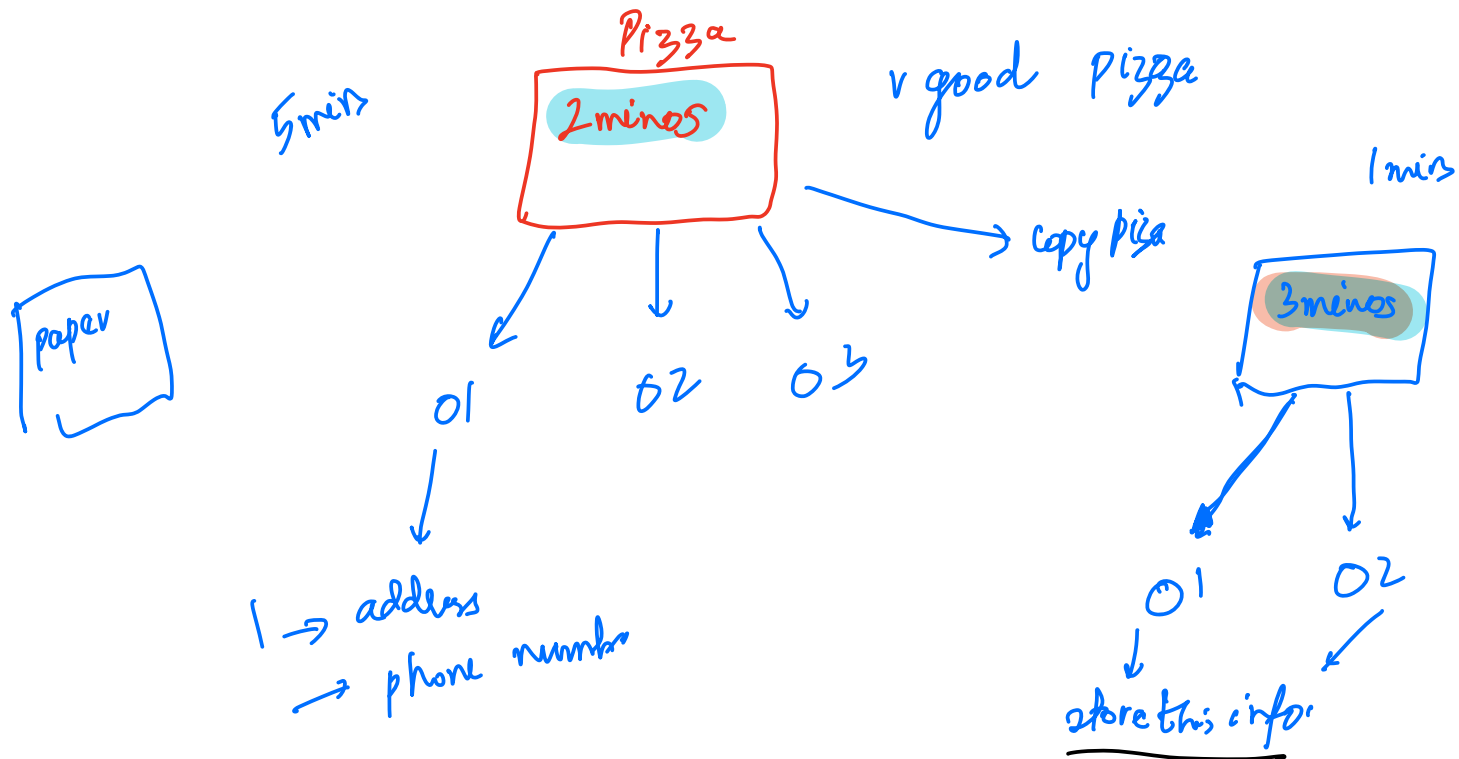 Pizza
5 mins
2minos
v good pizza
1 mins
copy pizza
3minos
paper
O1
O2
O3
1 → address
→ phone number
O1
O2
store this info.